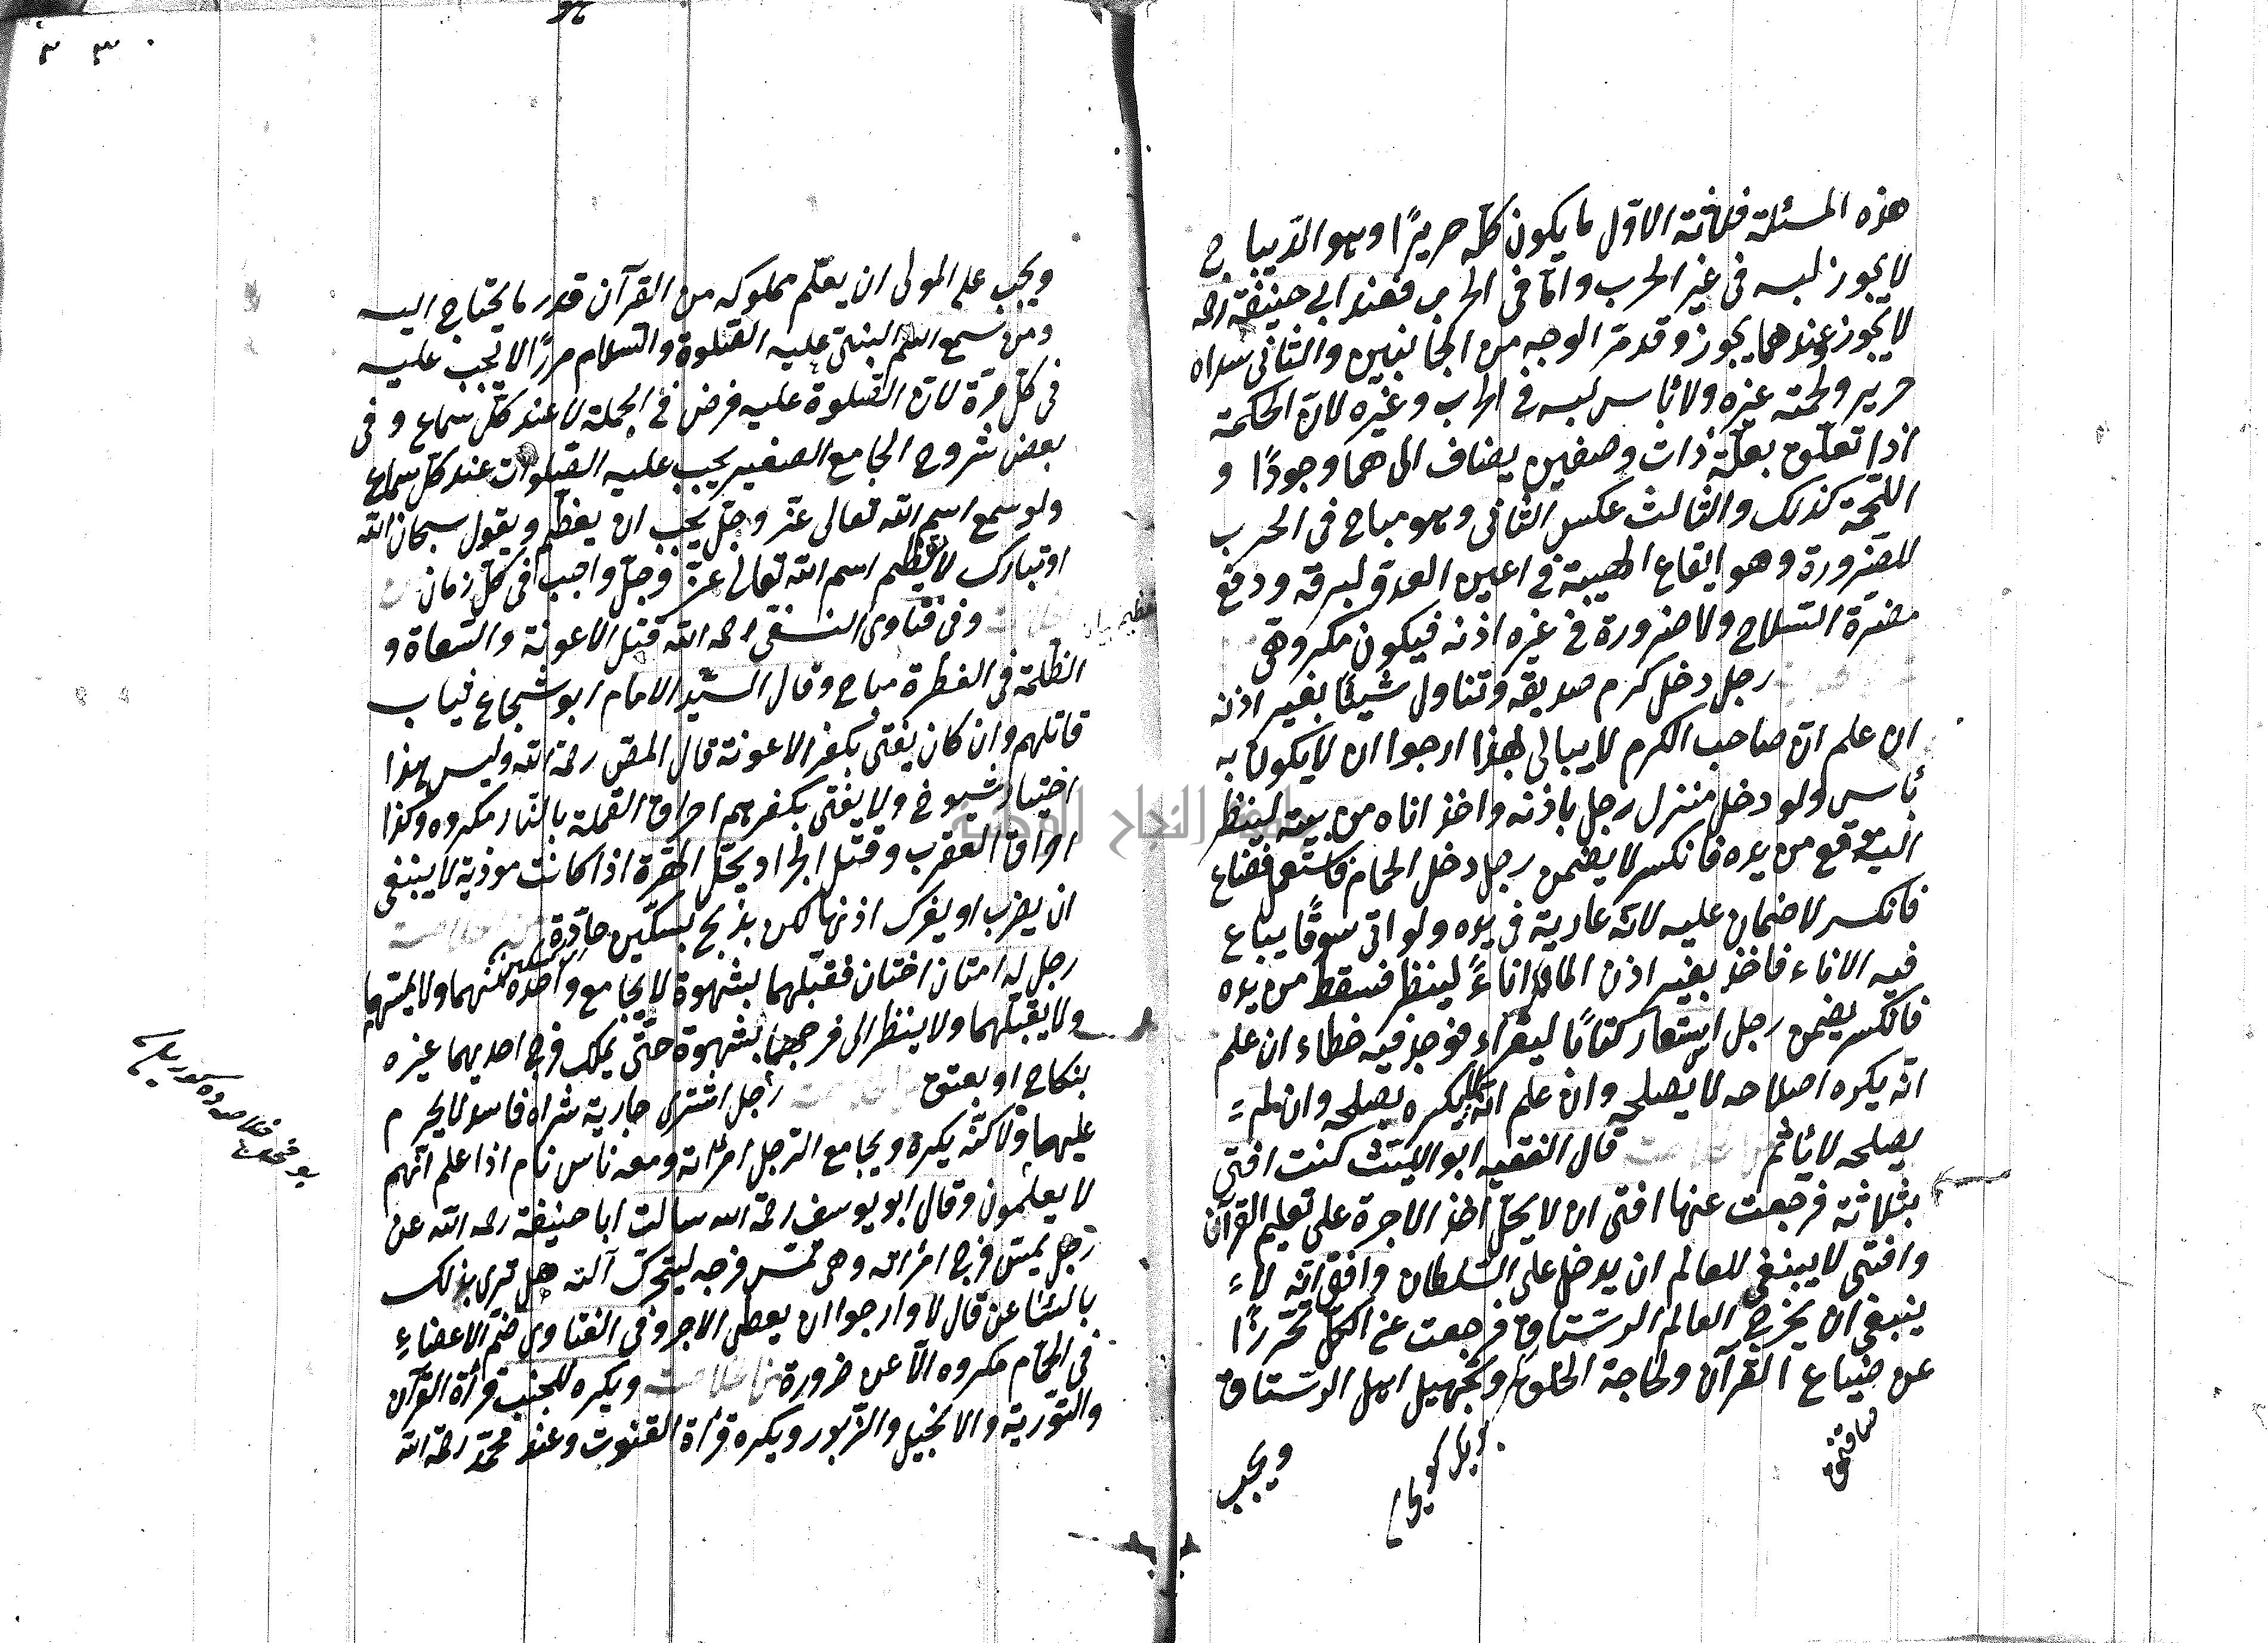 هذه المسئلة فثلاثة الاول ما يكون كله حريرًا وهو الديباج
لا يجوز لبسه فى غير الحرب واما فى الحرب فعند ابى حنيفة رحمه
لا يجوز وعندهما يجوز وقد مر الوجه من الجانبين والثانى سداه
حرير ولحمته غيره ولا بأس لبسه فى الحرب وغيره لان الحكمة
اذا تعلق بعلة ذات وصفين يضاف الى هما وجودًا و
اللحمة كذلك والثالث عكس الثانى وهو مباح فى الحرب
للضرورة وهو ايقاع الهيبة فى اعين العدو لبرقه ودفع
مضرة السلاح ولا ضرورة فى غيره اذنه فيكون مكروهى
رجل دخل كرم صديقه وتناول شيئا بغير اذنه
ان علم ان صاحب الكرم لا يبالى بهذا ارجوا ان لا يكون به
بأس ولو دخل منزل رجل باذنه واخذ اناه من بيته لينظر
اليه فوقع من يده فانكسر لا يضمن رجل دخل الحمام فاستعمل فضاع
فانكسر لا ضمان عليه لانه عارية فى يده ولو اتى سوقًا يباع
فيه الاناء فاخذ بغير اذن المالك اناءً لينظر فسقط من يده
فانكسر يضمن رجل استعار كتابًا ليقراء فوجد فيه خطاء ان علم
انه يكره اصلاحه لا يصلحه وان علم انه لا يكره يصلحه وان لم
يصلحه لا يأثم قال الفقيه ابو الليث كنت افتى
بثلاثة فرجعت عنها افتى ان لا يحل اخذ الاجرة على تعليم القرآن
وافتى لا ينبغى للعالم ان يدخل على السلطان وافتى انه لا
ينبغى ان يخرج العالم الرستاق فرجعت عن الكل تحررًا
عن ضياع القرآن ولحاجة الخلق وتجهيل اهل الرستاق
ويجب
ويجب على المولى ان يعلم مملوكه من القرآن قدر ما يحتاج اليه
ومن سمع اسم النبى عليه الصلوة والسلام مررًا لا يجب عليه
فى كل مرة لان الصلوة عليه فرض فى الجملة لا عند كل سماع وفى
بعض شروح الجامع الصغير يجب عليه الصلوات عند كل سماع
ولو سمع اسم الله تعالى عز وجل يجب ان يعظم ويقول سبحان الله
او تبارك لان تعظيم اسم الله تعالى عز وجل واجب فى كل زمان
وفى فتاوى النسفى رحمه الله قتل الاعونة والسعاة و
الظلمة فى الفطرة مباح وقال السيد الامام ابو شجاع يثاب
قاتلهم وان كان يفتى بكفر الاعونة قال المص رحمه الله وليس هذا
اختيار شيوخى ولا يفتى بكفرهم احراق القملة بالنار مكروه وكذا
احراق العقرب وقتل الجراد يحل الهرة اذا كانت موذية لا ينبغى
ان يضرب او يفرك اذنها لكن يذبح بسكين حادة
رجل له امتان اختان فقبلهما بشهوة لا يجامع واحدة منهما ولا يمسهما
ولا يقبلهما ولا ينظر الى فرجهما بشهوة حتى يملك فرج احديهما غيره
بنكاح او بعتق رجل اشترى جارية شراه فاسد لا يحرم
عليهما ولا كنه يكره ويجامع الرجل امرأته ومعه ناس نام اذا علم انهم
لا يعلمون وقال ابو يوسف رحمة الله سالت ابا حنيفة رحمه الله عن
رجل يمس فرج امرأته وهى تمس فرجه ليتحرك آلته هل ترى بذلك
بالسًا عن قال لا وارجوا ان يعطى الاجر وفى الفتاوى ضم الاعضاء
فى الحمام مكروه الا عن ضرورة ويكره للجنب قرأة القرآن
والتورية والانجيل والزبور ويكره قرأة القنوت وعند محمد رحمه الله
جامعة النجاح الوطنية